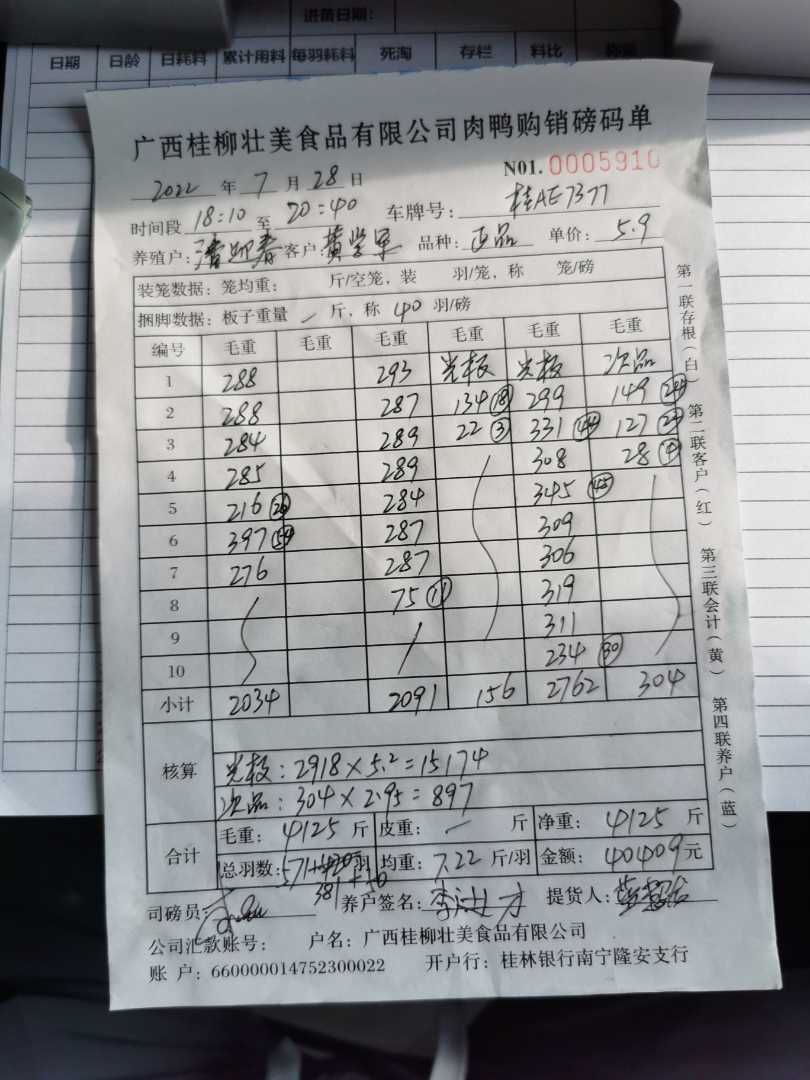 进苗日期:
日期 日龄 日耗料 累计用料 每羽耗料 死淘 存栏 料比
广西桂柳壮美食品有限公司肉鸭购销磅码单
N01. 0005910
2022 年 7 月 28 日
时间段 18:10 至 20:40 车牌号: 桂AE7377
养殖户: 潘迎春 客户: 黄学军 品种: 正品 单价: 5.9
装笼数据: 笼均重: 斤/空笼, 装 羽/笼, 称 笼/磅
捆脚数据: 板子重量 — 斤, 称 40 羽/磅
编号 毛重 毛重 毛重 毛重 毛重 毛重
1 288 293 光板 光板 次品
2 288 287 134 18 299 149 24
3 284 289 22 3 331 44 127 23
4 285 289 308 28
5 216 26 284 345 45
6 397 54 287 309
7 276 287 306
8 75 11 319
9 311
10 234 30
小计 2034 2091 156 2762 304
核算
光板: 2918 × 5.2 = 15174
次品: 304 × 2.95 = 897
合计
毛重: 4125 斤 皮重: — 斤 净重: 4125 斤
总羽数: 571+420 羽 均重: 7.22 斤/羽 金额: 40409 元
381+50
司磅员: 养户签名: 提货人:
公司汇款账号: 户名: 广西桂柳壮美食品有限公司
账 户: 660000014752300022 开户行: 桂林银行南宁隆安支行
第一联存根(白) 第二联客户(红) 第三联会计(黄) 第四联养户(蓝)